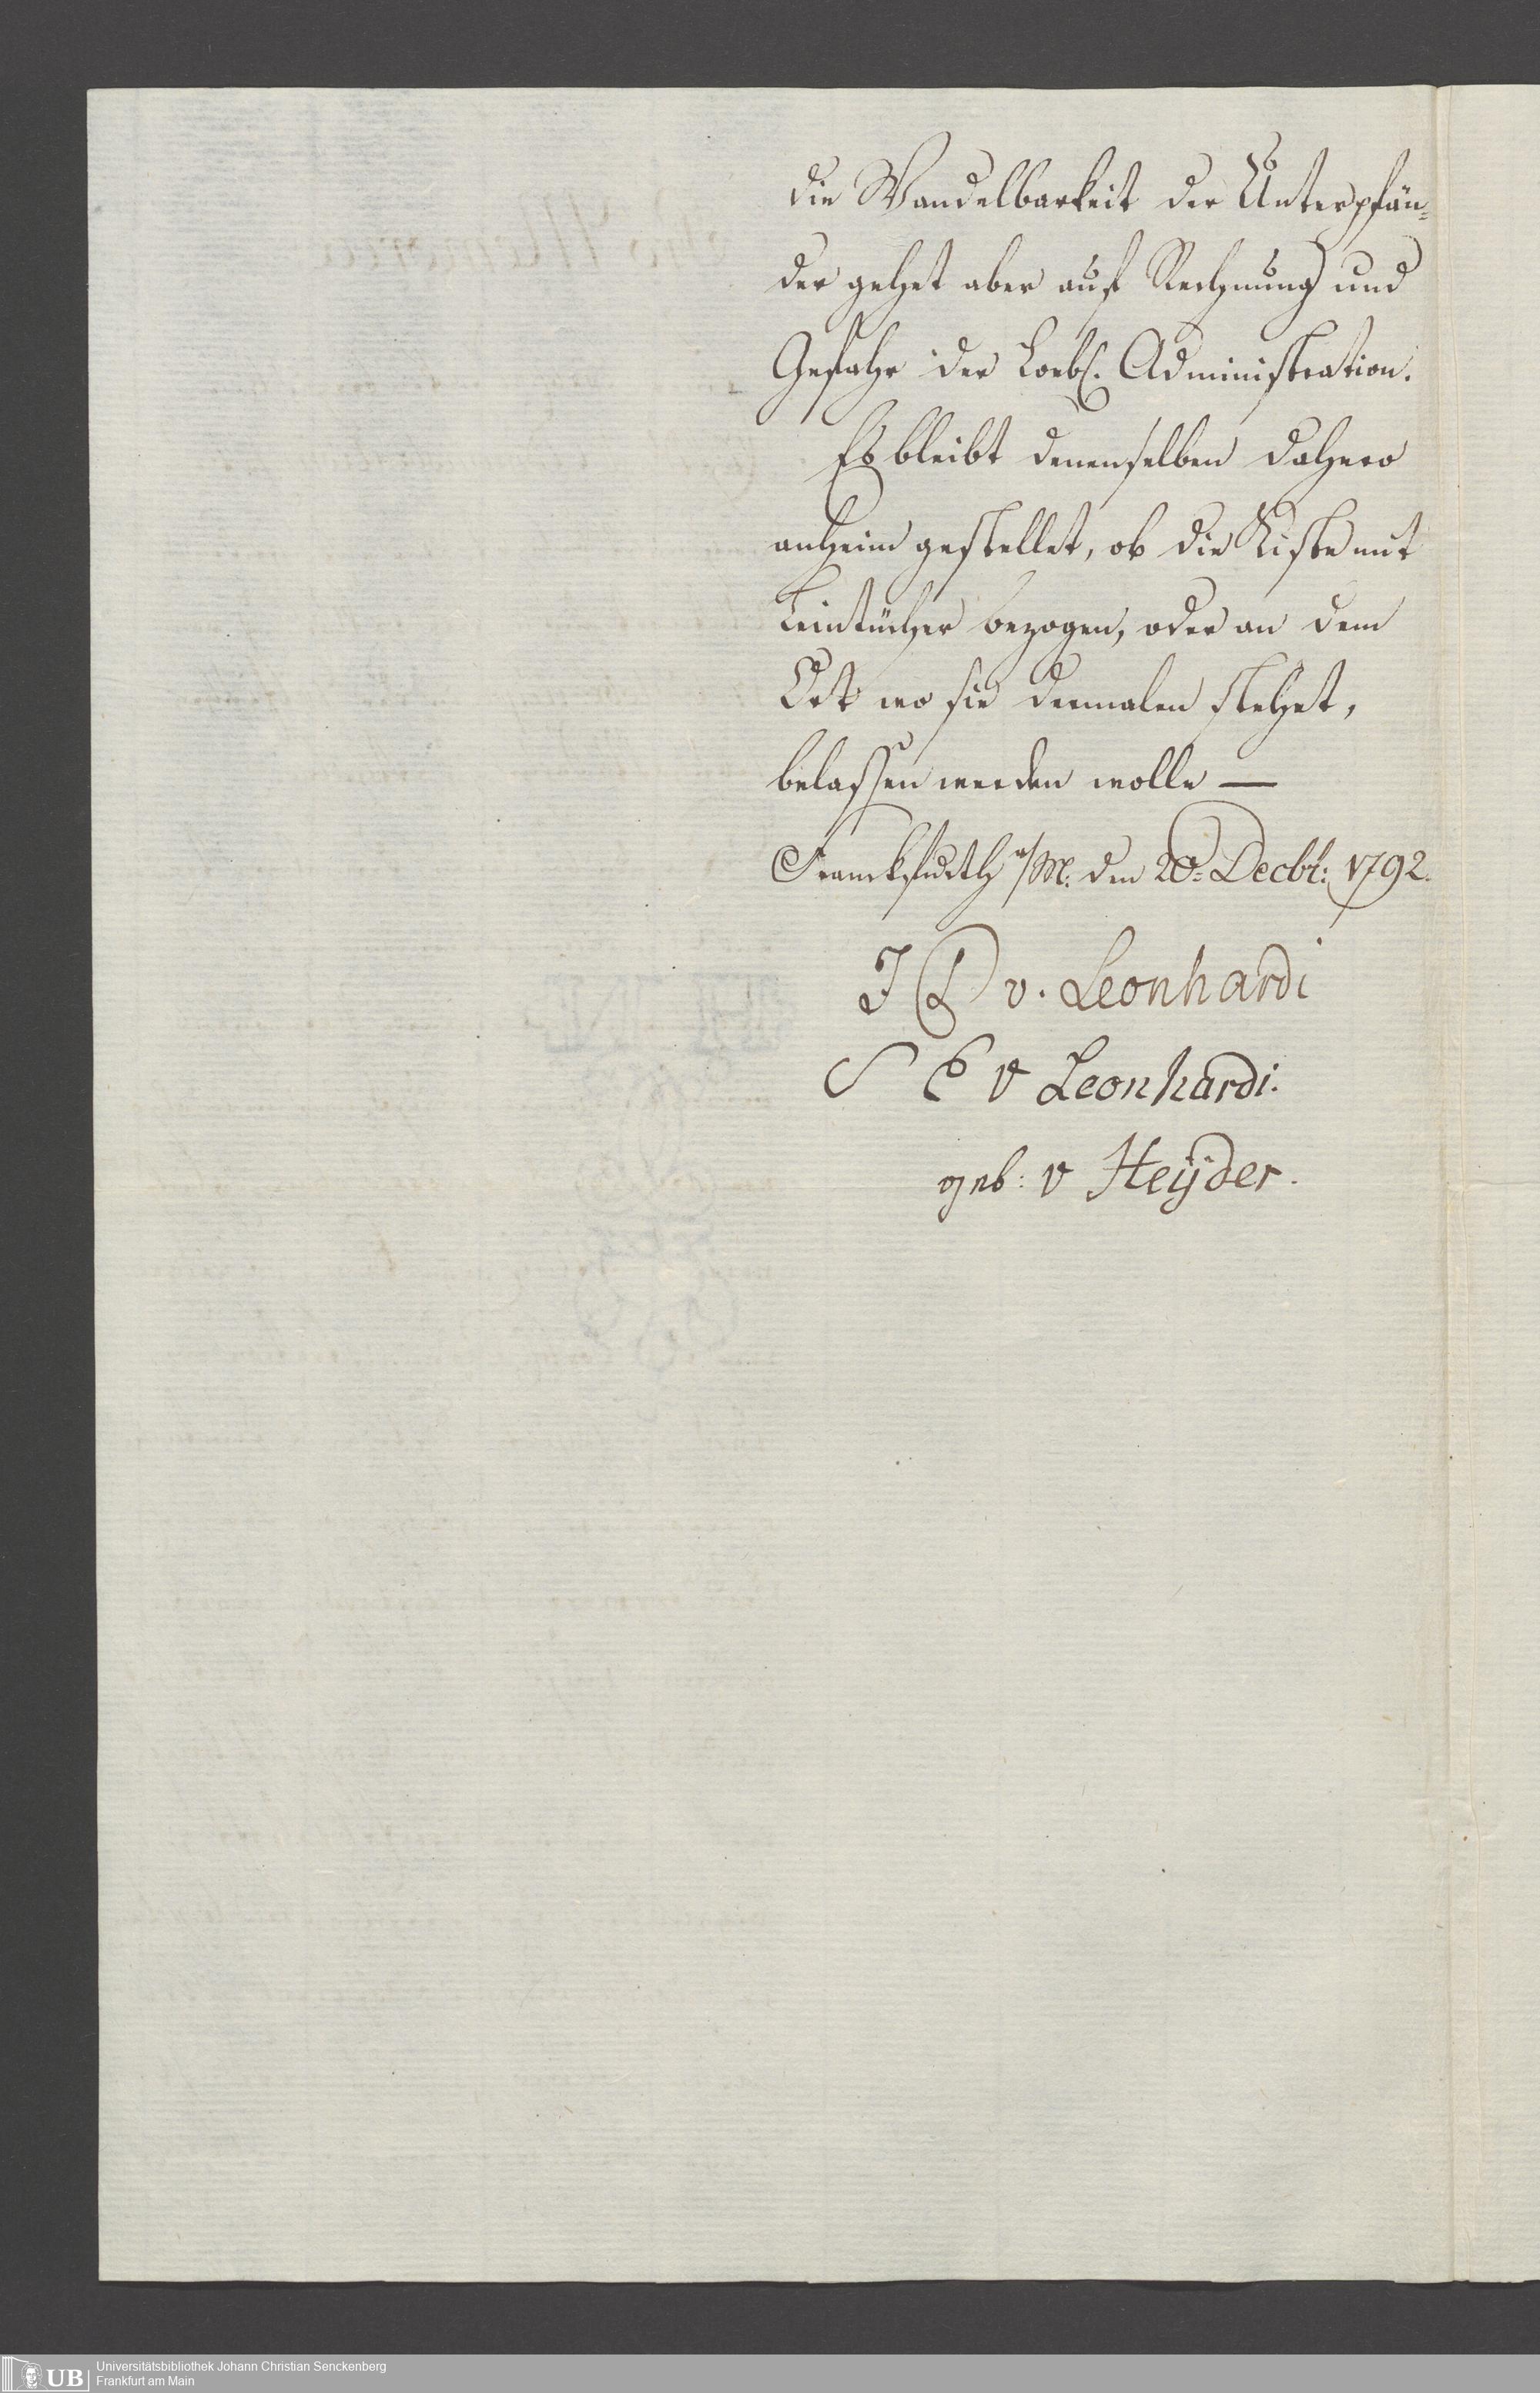 die Wandelbarkeit der Unterpfän-
der gehet aber auf Rechnung und
Gefahr der Loebl. Administration.
Es bleibt denenselben dahero
anheim gestellet, ob die Kiste mit
Leintücher bezogen, oder an dem
Ort wo sie dermalen stehet,
belassen werden wolle —
Franckfurth a/M. den 20= Decbr: 1792.
J P v. Leonhardi
S E v Leonhardi.
geb: v Heÿder.
UB
Universitätsbibliothek Johann Christian Senckenberg
Frankfurt am Main